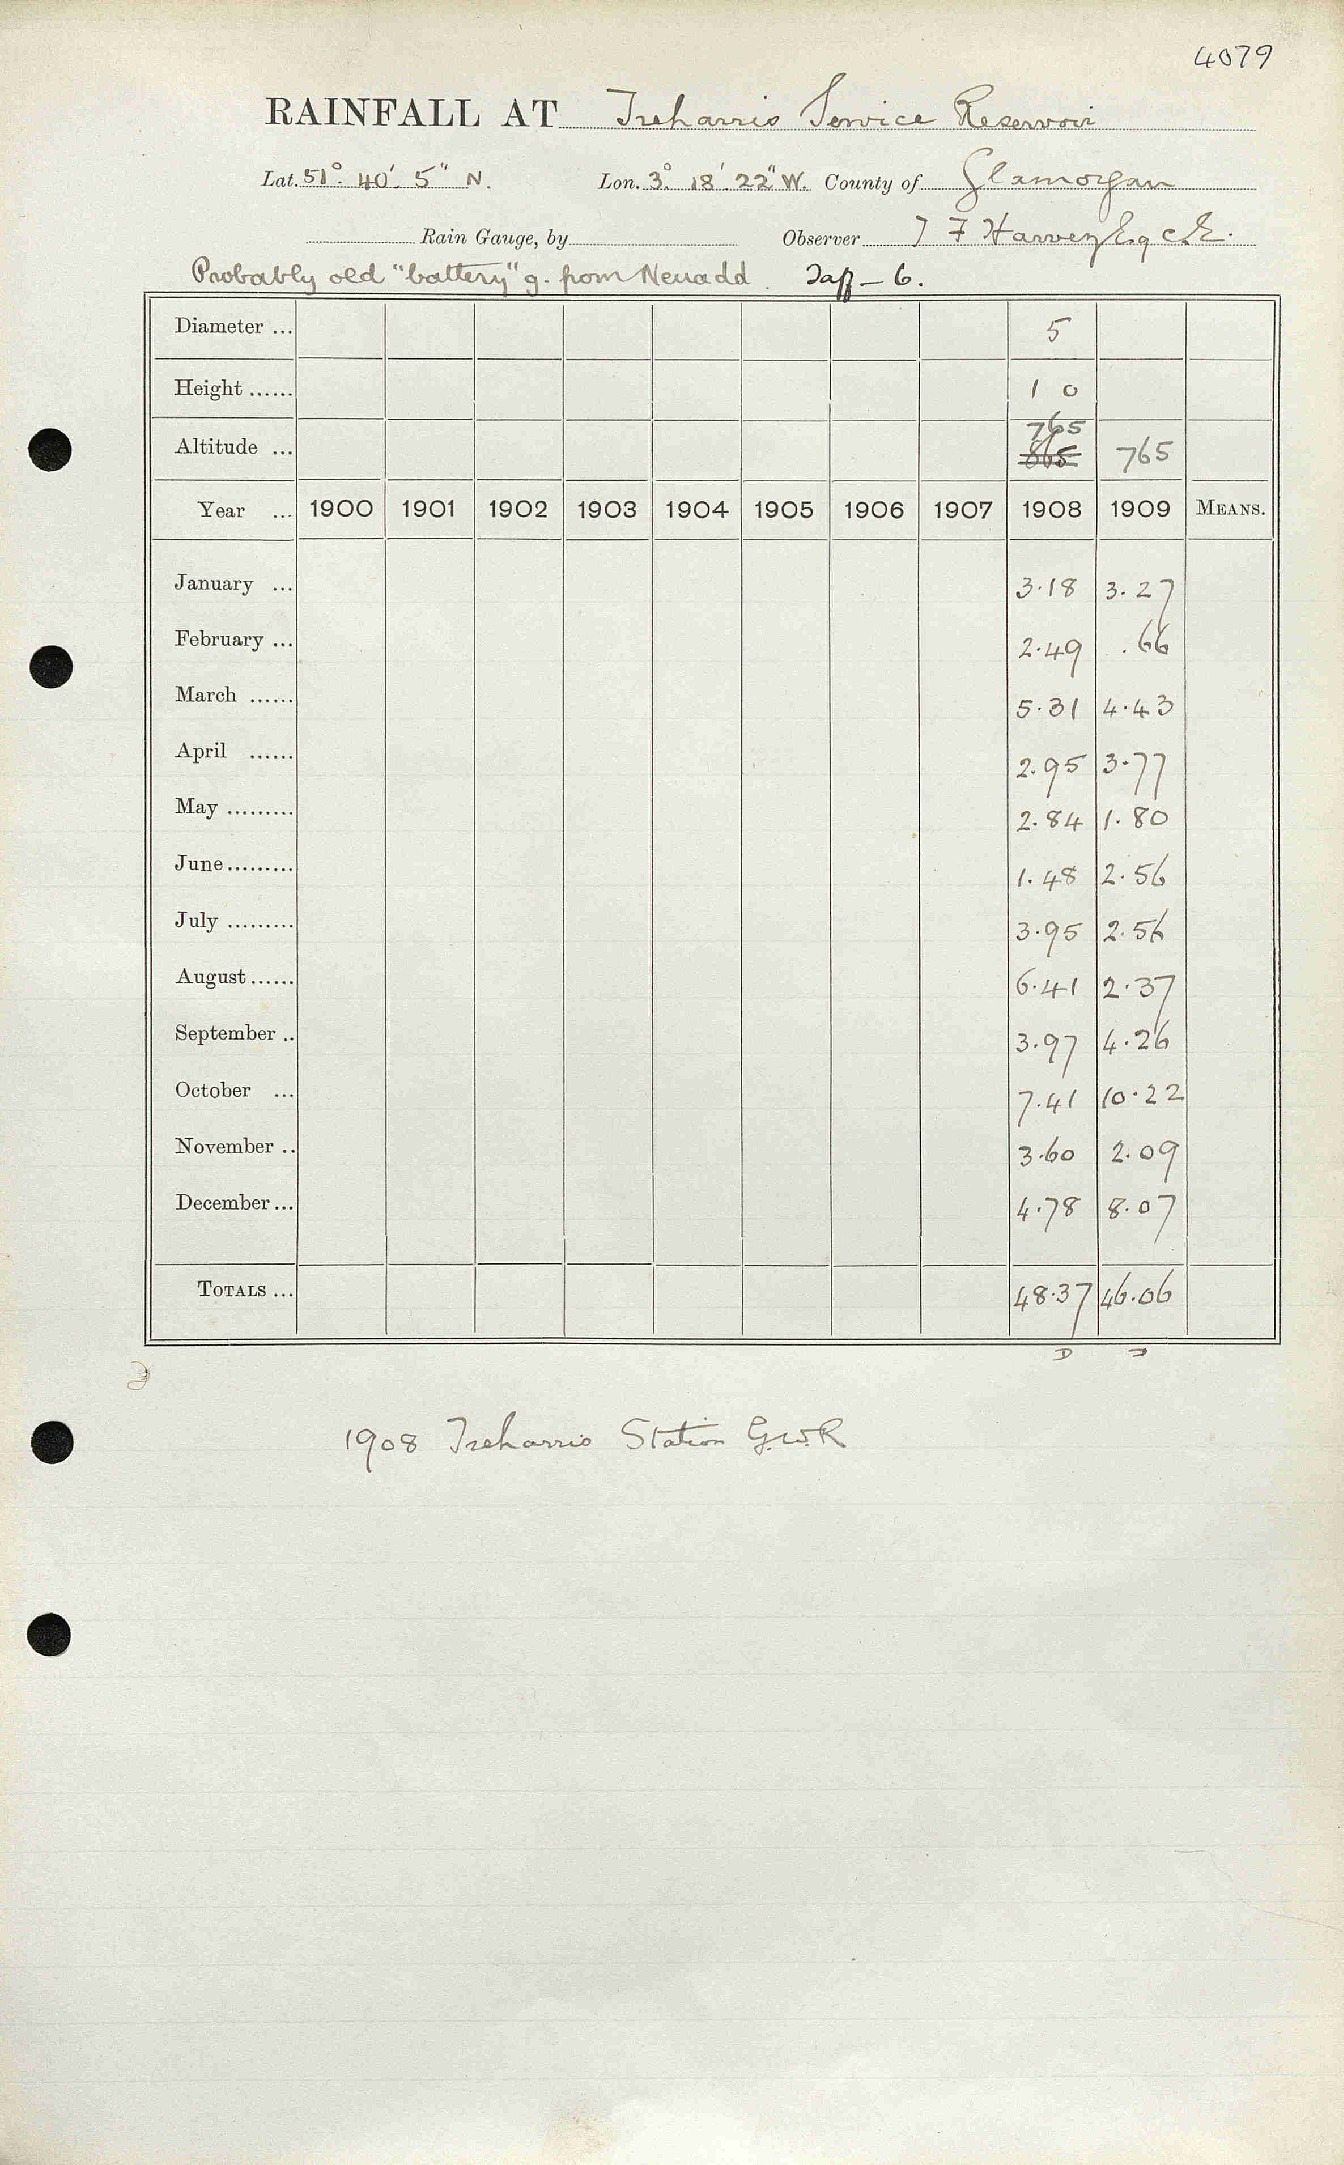 4079
RAINFALL AT Treharris Service Reservoir
Lat. 51° 40' 5" N. Lon. 3° 18' 22" W. County of Glamorgan
Rain Gauge, by Observer T F Harvey Esq C.E.
Probably old "battery" g. from Neuadd. Taff – 6.
Diameter ... 5
Height ...... 1 0
765
Altitude ... 865 765
Year ... 1900 1901 1902 1903 1904 1905 1906 1907 1908 1909 MEANS.
January ... 3.18 3.27
February ... 2.49 .66
March ...... 5.31 4.43
April ...... 2.95 3.77
May ......... 2.84 1.80
June ......... 1.48 2.56
July ......... 3.95 2.56
August ...... 6.41 2.37
September .. 3.97 4.26
October ... 7.41 10.22
November .. 3.60 2.09
December ... 4.78 8.07
TOTALS ... 48.37 46.06
1908 Treharris Station G.W.R